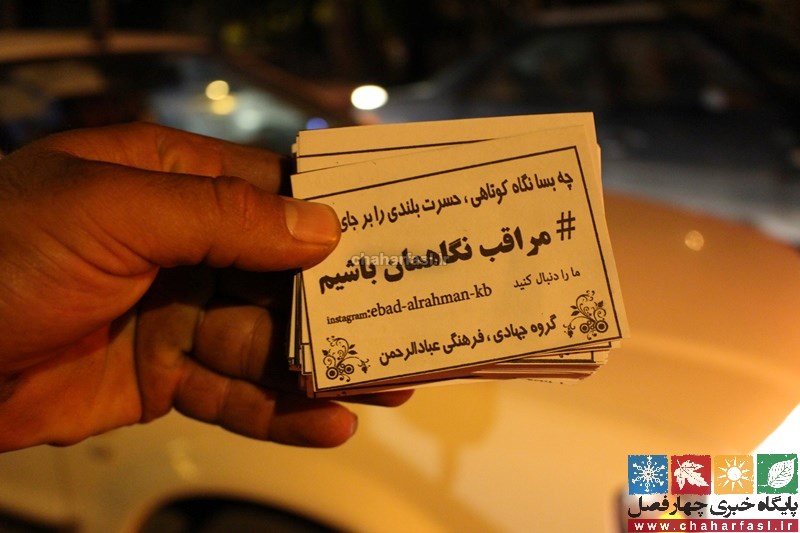 چه بسا نگاه کوتاهی ، حسرت بلندی را بر جای
# مراقب نگاهمان باشیم
ما را دنبال کنید
instagram:ebad-alrahman-kb
گروه جهادی ، فرهنگی عبادالرحمن
پایگاه خبری چهارفصل
www.chaharfasl.ir